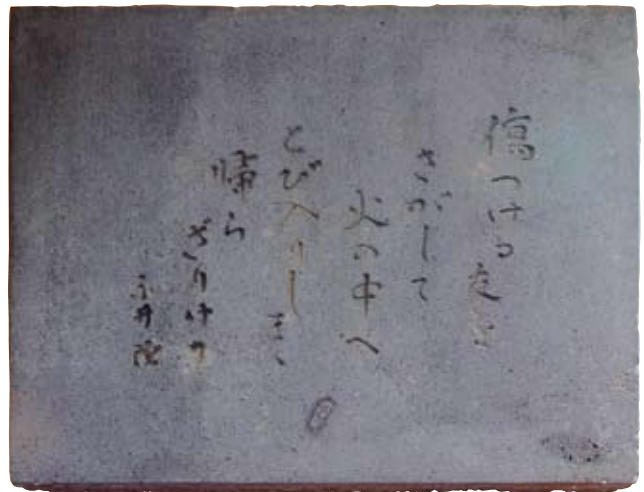 傷つける友を
さがして
火の中へ
とび入りしまゝ
帰ら
ざりけり
永井隆